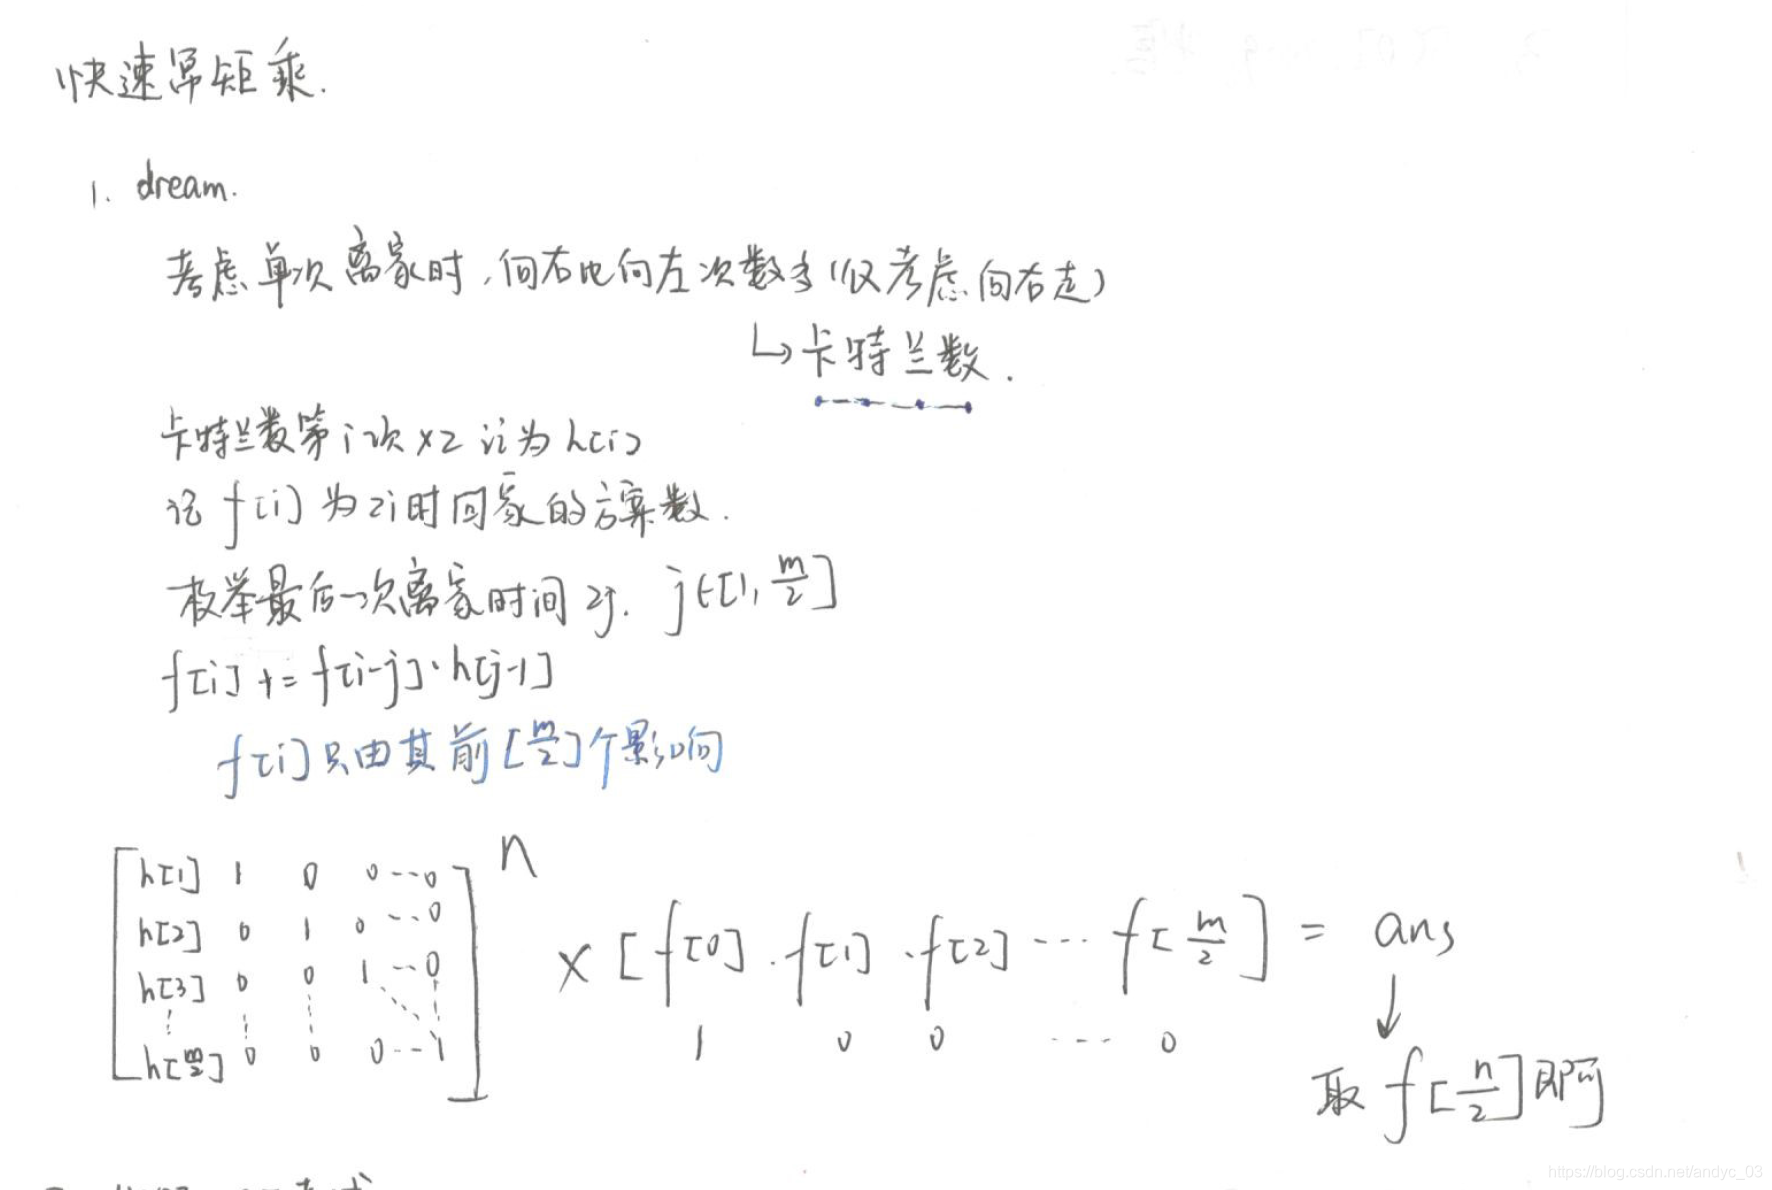 快速幂矩乘.
1. dream.
考虑单次离家时,向右比向左次数多(仅考虑向右走)
↳卡特兰数.
卡特兰数第i次×2 记为h[i]
记 f[i] 为2i时回家的方案数.
枚举最后一次离家时间2j. j∈[1, m/2]
f[i] += f[i-j]·h[j-1]
f[i]只由其前[m/2]个影响
h[1] 1 0 0 --- 0
h[2] 0 1 0 --- 0
h[3] 0 0 1 -- 0
h[m/2] 0 0 0 --- 1
n
× [f[0] . f[1] . f[2] ---- f[m/2]] = ans
1 0 0 ---- 0
↓
取 f[n/2] 即可
https://blog.csdn.net/andyc_03